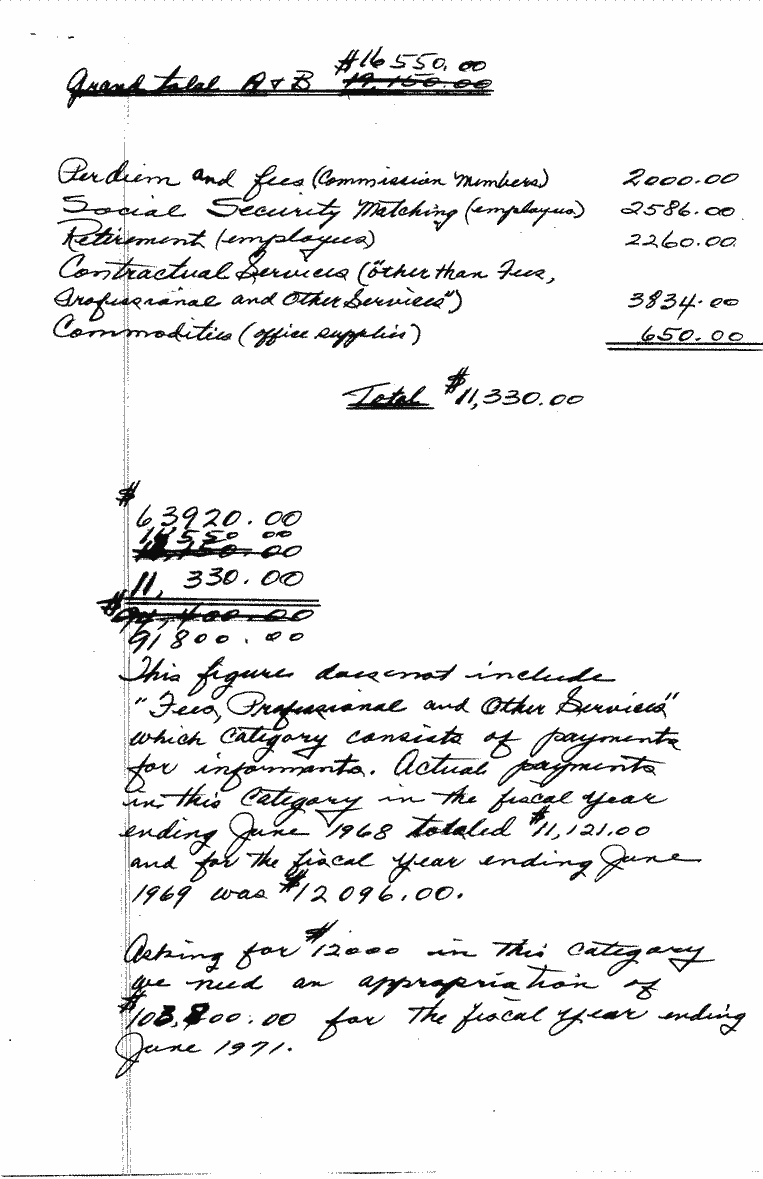 $16550.00
Grand total A & B 19,150.00
Per diem and fees (Commission Members) 2000.00
Social Security Matching (employees) 2586.00
Retirement (employees) 2260.00
Contractual Services ("other than Fees,
Professional and Other Services") 3834.00
Commodities (office supplies) 650.00
Total $11,330.00
$
63920.00
16550 00
19,150.00
11, 330.00
$94,400.00
91800.00
This figures does not include
"Fees, Professional and Other Services"
which category consists of payments
for informants. Actual payments
in this category in the fiscal year
ending June 1968 totaled $11,121.00
and for the fiscal year ending June
1969 was $12096.00.
Asking for $12000 in this category
we need an appropriation of
$103,800.00 for the fiscal year ending
June 1971.